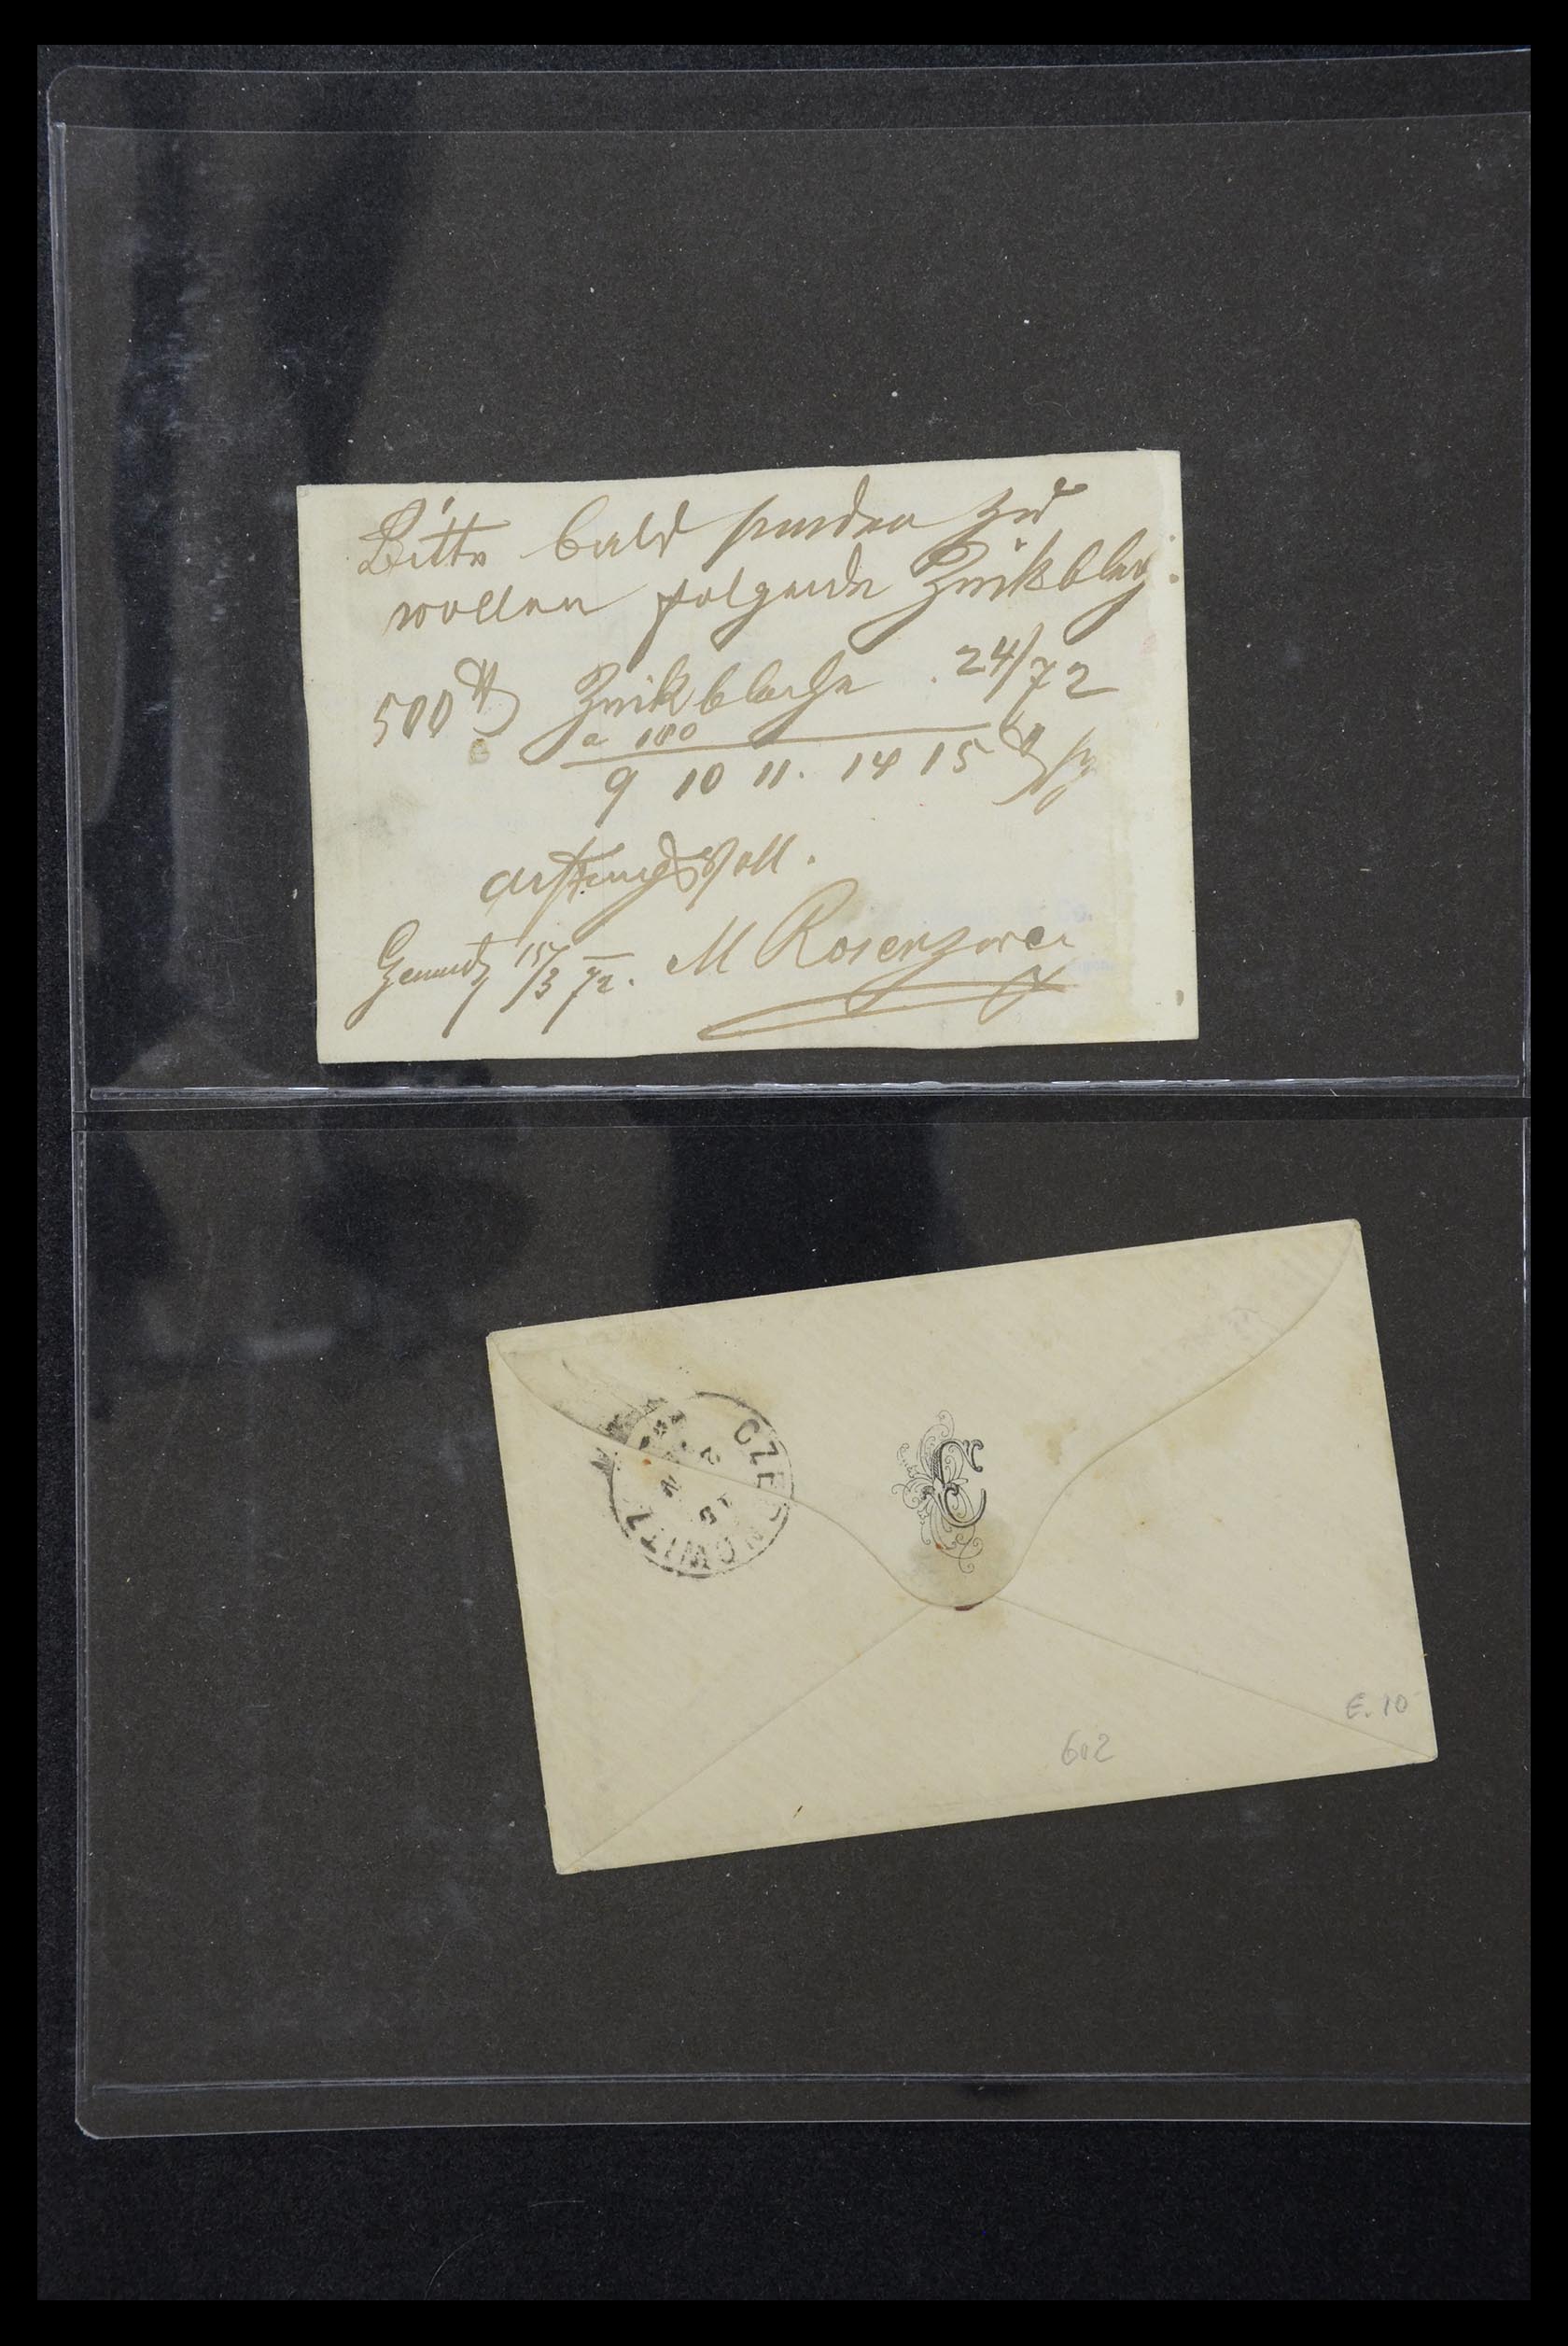 Bitte bald senden zu
wollen folgende Zinkblech:
500 ℔ Zinkbleche . 24/72
a 180
9 10 11. 14 15 ℔
achtungsvoll.
15/3 72. M Rosenzwei
CZERNOWITZ
C
602
E. 10